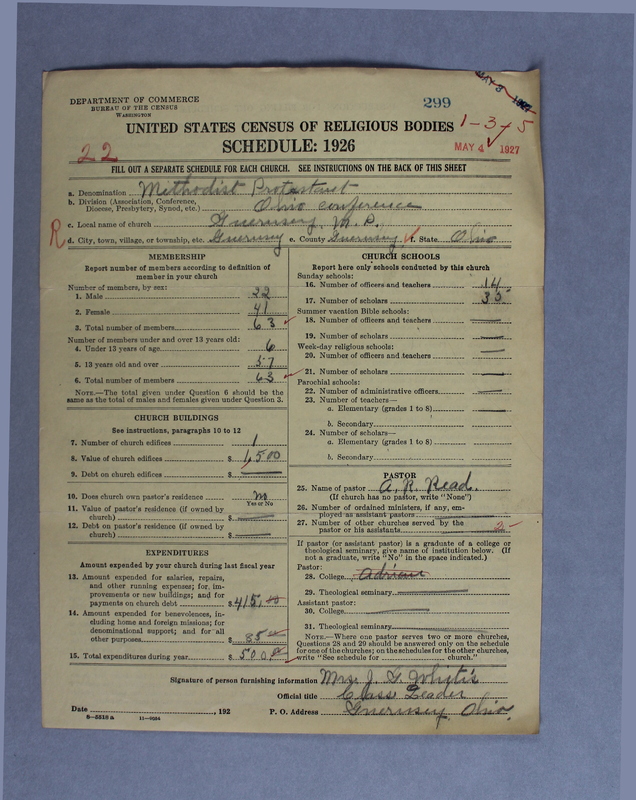 DEPARTMENT OF COMMERCE
BUREAU OF THE CENSUS
WASHINGTON
299
MAY 3 1927
UNITED STATES CENSUS OF RELIGIOUS BODIES
1-3-5
SCHEDULE: 1926
MAY 4 1927
22
FILL OUT A SEPARATE SCHEDULE FOR EACH CHURCH. SEE INSTRUCTIONS ON THE BACK OF THIS SHEET
a. Denomination Methodist Protestant
b. Division (Association, Conference, Diocese, Presbytery, Synod, etc.) Ohio conference
c. Local name of church Guernsey M. P.
R
d. City, town, village, or township, etc. Guernsey e. County Guernsey f. State Ohio
MEMBERSHIP
Report number of members according to definition of member in your church
Number of members, by sex:
1. Male 22
2. Female 41
3. Total number of members 63
Number of members under and over 13 years old:
4. Under 13 years of age 6
5. 13 years old and over 57
6. Total number of members 63
NOTE.—The total given under Question 6 should be the same as the total of males and females given under Question 3.
CHURCH BUILDINGS
See instructions, paragraphs 10 to 12
7. Number of church edifices 1
8. Value of church edifices $ 1,500
9. Debt on church edifices $
10. Does church own pastor's residence no
Yes or No
11. Value of pastor's residence (if owned by church) $
12. Debt on pastor's residence (if owned by church) $
EXPENDITURES
Amount expended by your church during last fiscal year
13. Amount expended for salaries, repairs, and other running expenses; for improvements or new buildings; and for payments on church debt $ 415.00
14. Amount expended for benevolences, including home and foreign missions; for denominational support; and for all other purposes $ 85.00
15. Total expenditures during year $ 500
CHURCH SCHOOLS
Report here only schools conducted by this church
Sunday schools:
16. Number of officers and teachers 14
17. Number of scholars 35
Summer vacation Bible schools:
18. Number of officers and teachers
19. Number of scholars
Week-day religious schools:
20. Number of officers and teachers
21. Number of scholars
Parochial schools:
22. Number of administrative officers
23. Number of teachers—
a. Elementary (grades 1 to 8)
b. Secondary
24. Number of scholars—
a. Elementary (grades 1 to 8)
b. Secondary
PASTOR
25. Name of pastor A. R. Read.
(If church has no pastor, write "None")
26. Number of ordained ministers, if any, employed as assistant pastors
27. Number of other churches served by the pastor or his assistants 2
If pastor (or assistant pastor) is a graduate of a college or theological seminary, give name of institution below. (If not a graduate, write "No" in the space indicated.)
Pastor:
28. College Adrian
29. Theological seminary
Assistant pastor:
30. College
31. Theological seminary
NOTE.—Where one pastor serves two or more churches, Questions 28 and 29 should be answered only on the schedule for one of the churches; on the schedules for the other churches, write "See schedule for church."
Signature of person furnishing information Mrs. J. G.
Official title Class Leader
Date , 192
P. O. Address Guernsey, Ohio.
8-5318 a 11-9034